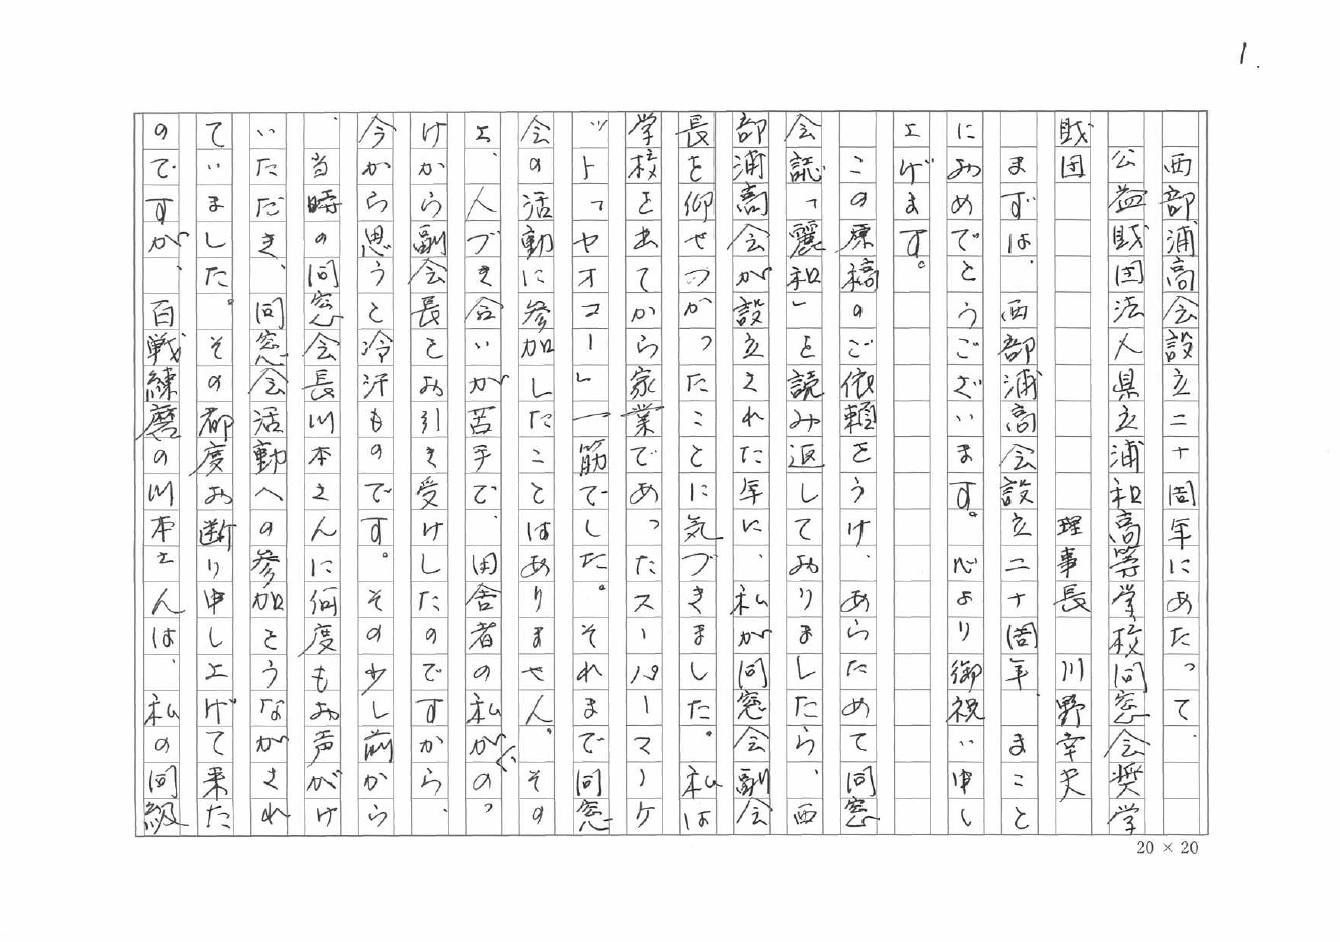 1.
西部浦高会設立二十周年にあたって、
公益財団法人県立浦和高等学校同窓会奨学
財団　理事長　川野幸夫
まずは、西部浦高会設立二十周年、まこと
におめでとうございます。心より御祝い申し
上げます。
この原稿のご依頼をうけ、あらためて同窓
会誌「麗和」を読み返しておりましたら、西
部浦高会が設立された年に、私が同窓会副会
長を仰せつかったことに気づきました。私は
学校を出てから家業であったスーパーマーケ
ット「ヤオコー」一筋でした。それまで同窓
会の活動に参加したことはありません。その
上、人づき合いが苦手で、田舎者の私がのっ
けから副会長をお引き受けしたのですから、
今から思うと冷汗ものです。その少し前から
、当時の同窓会長川本さんに何度もお声がけ
いただき、同窓会活動への参加をうながされ
ていました。その都度お断り申し上げて来た
のですが、百戦練磨の川本さんは、私の同級
20 × 20